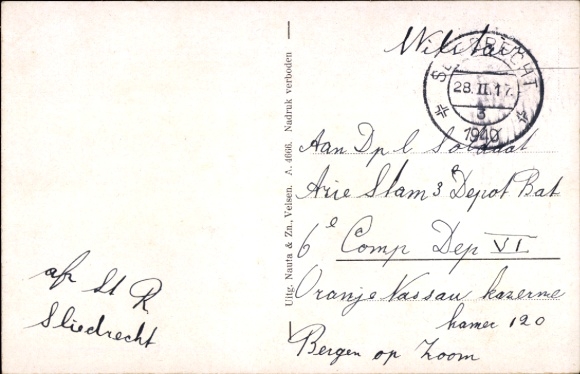 Militair
SLIEDRECHT
28.II.17.
3
1940
Aan Dpl Soldaat
Arie Stam 3e Depot Bat
6e Comp Dep VI
Oranje Nassau kazerne
kamer 120
Bergen op Zoom
afz St R
Sliedrecht
Uitg. Nauta & Zn., Velsen. A. 4666. Nadruk verboden